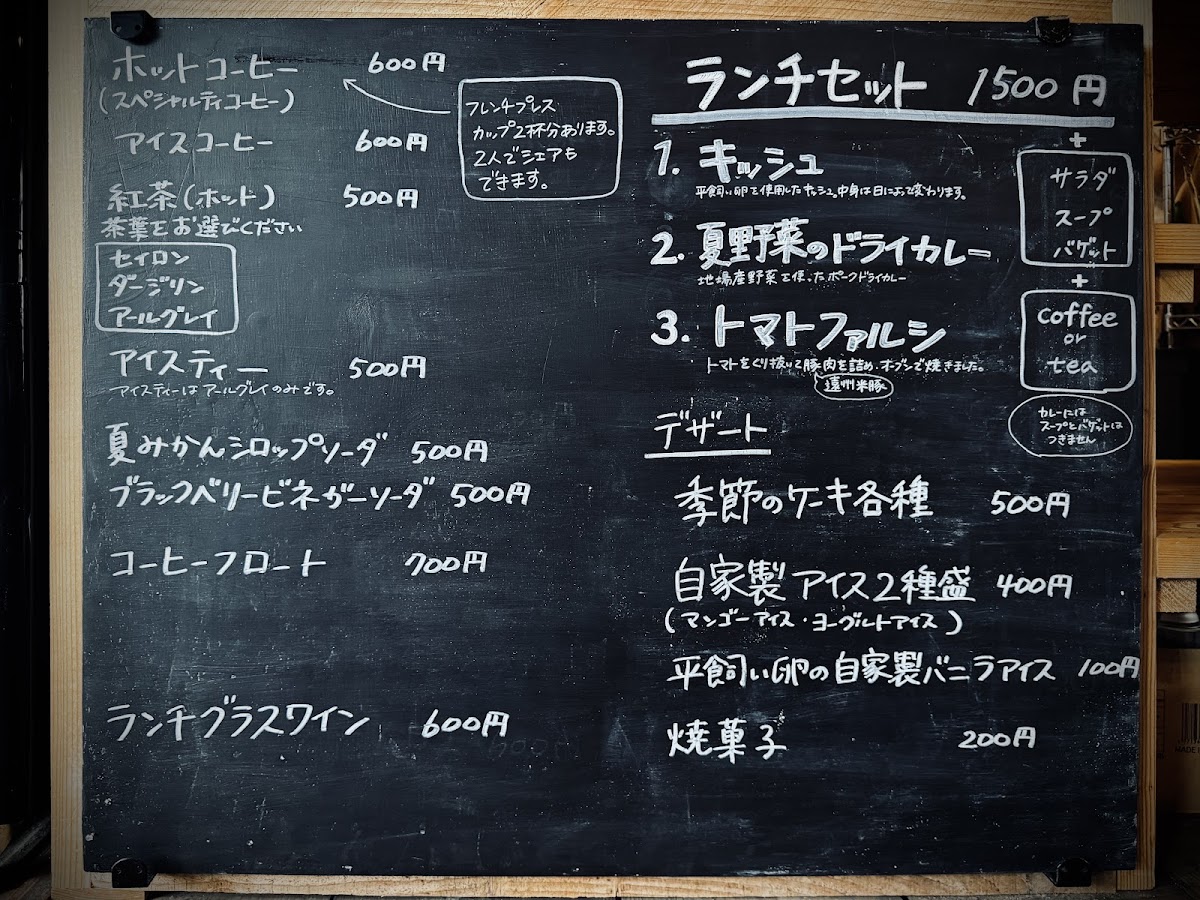 ホットコーヒー 600円
(スペシャルティコーヒー)
フレンチプレス
カップ2杯分あります。
2人でシェアも
できます。
アイスコーヒー 600円
紅茶(ホット) 500円
茶葉をお選びください
セイロン
ダージリン
アールグレイ
アイスティー 500円
アイスティーはアールグレイのみです。
夏みかんシロップソーダ 500円
ブラックベリービネガーソーダ 500円
コーヒーフロート 700円
ランチグラスワイン 600円
ランチセット 1500円
1. キッシュ
平飼い卵を使用したキッシュ。中身は日によって変わります。
2. 夏野菜のドライカレー
地場産野菜を使ったポークドライカレー
3. トマトファルシ
トマトをくり抜いて豚肉を詰め、オーブンで焼きました。
遠州米豚
+
サラダ
スープ
バゲット
+
coffee
or
tea
カレーには
スープとバゲットは
つきません
デザート
季節のケーキ各種 500円
自家製アイス2種盛 400円
(マンゴーアイス・ヨーグルトアイス)
平飼い卵の自家製バニラアイス 100円
焼菓子 200円